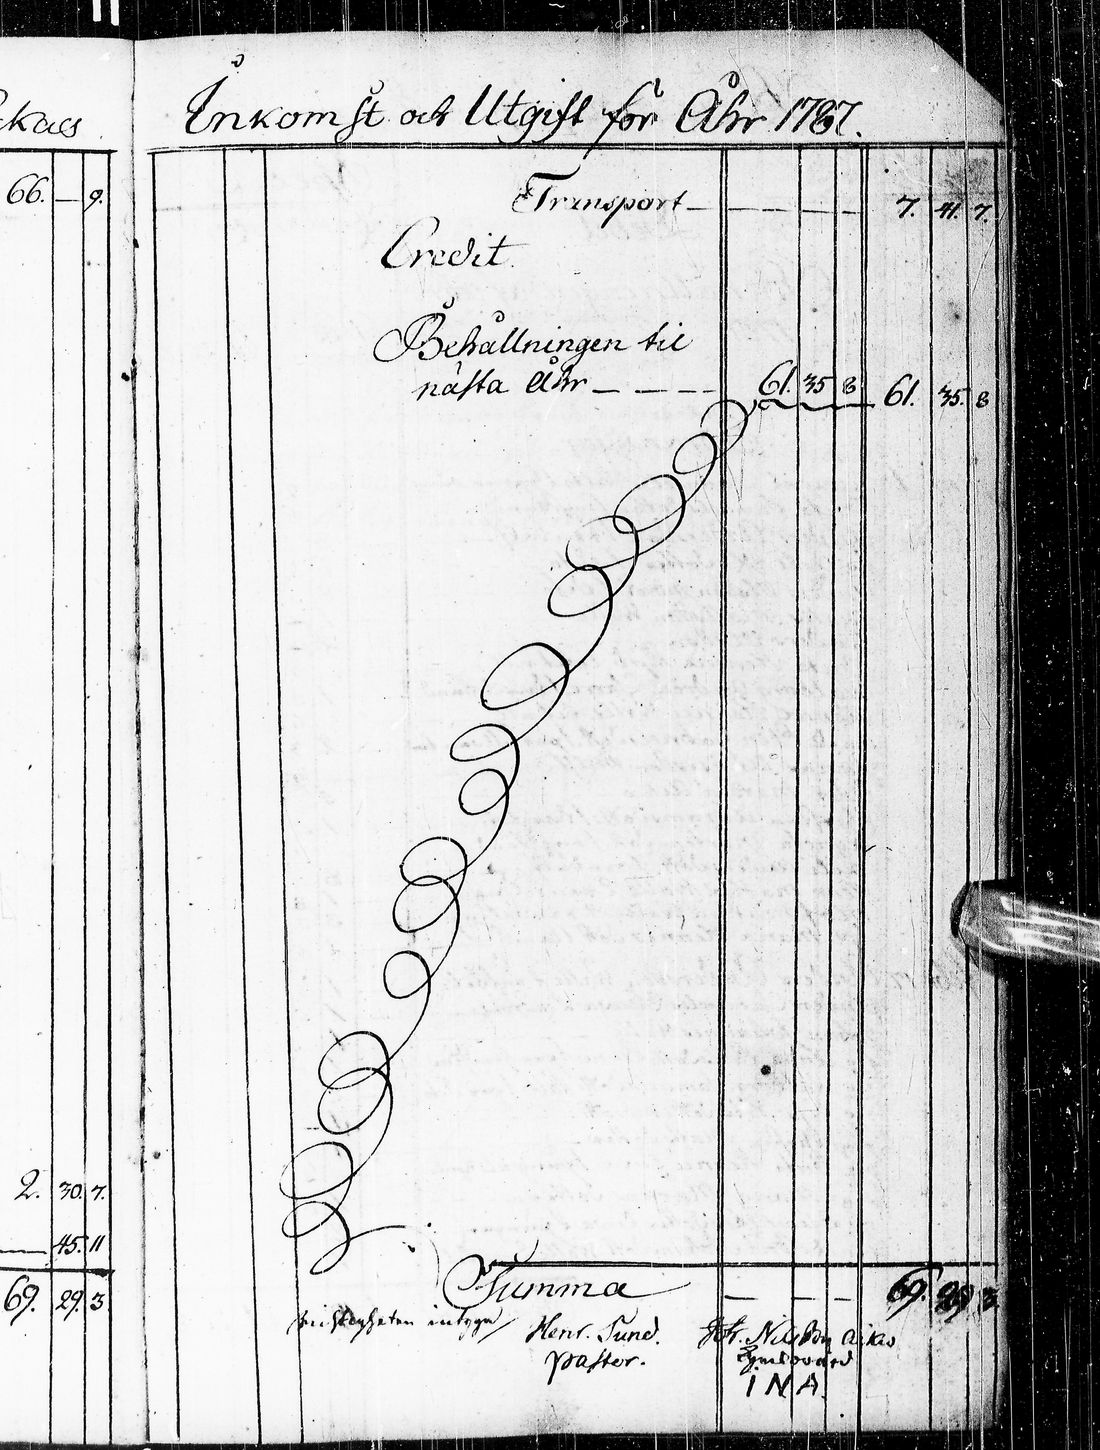 Inkomst och Utgift för Åhr 1787.
66. — 9.
Transport — — — — — 7. 41. 7.
Credit.
Behållningen til
nästa Åhr — — — — 61. 35 8 61. 35. 8
2. 30. 7.
45. 11
69. 29. 3
Summa — — — 69. 29 3
intygar Henr. Sund. Joh. Nilsson
Pastor.
I N A